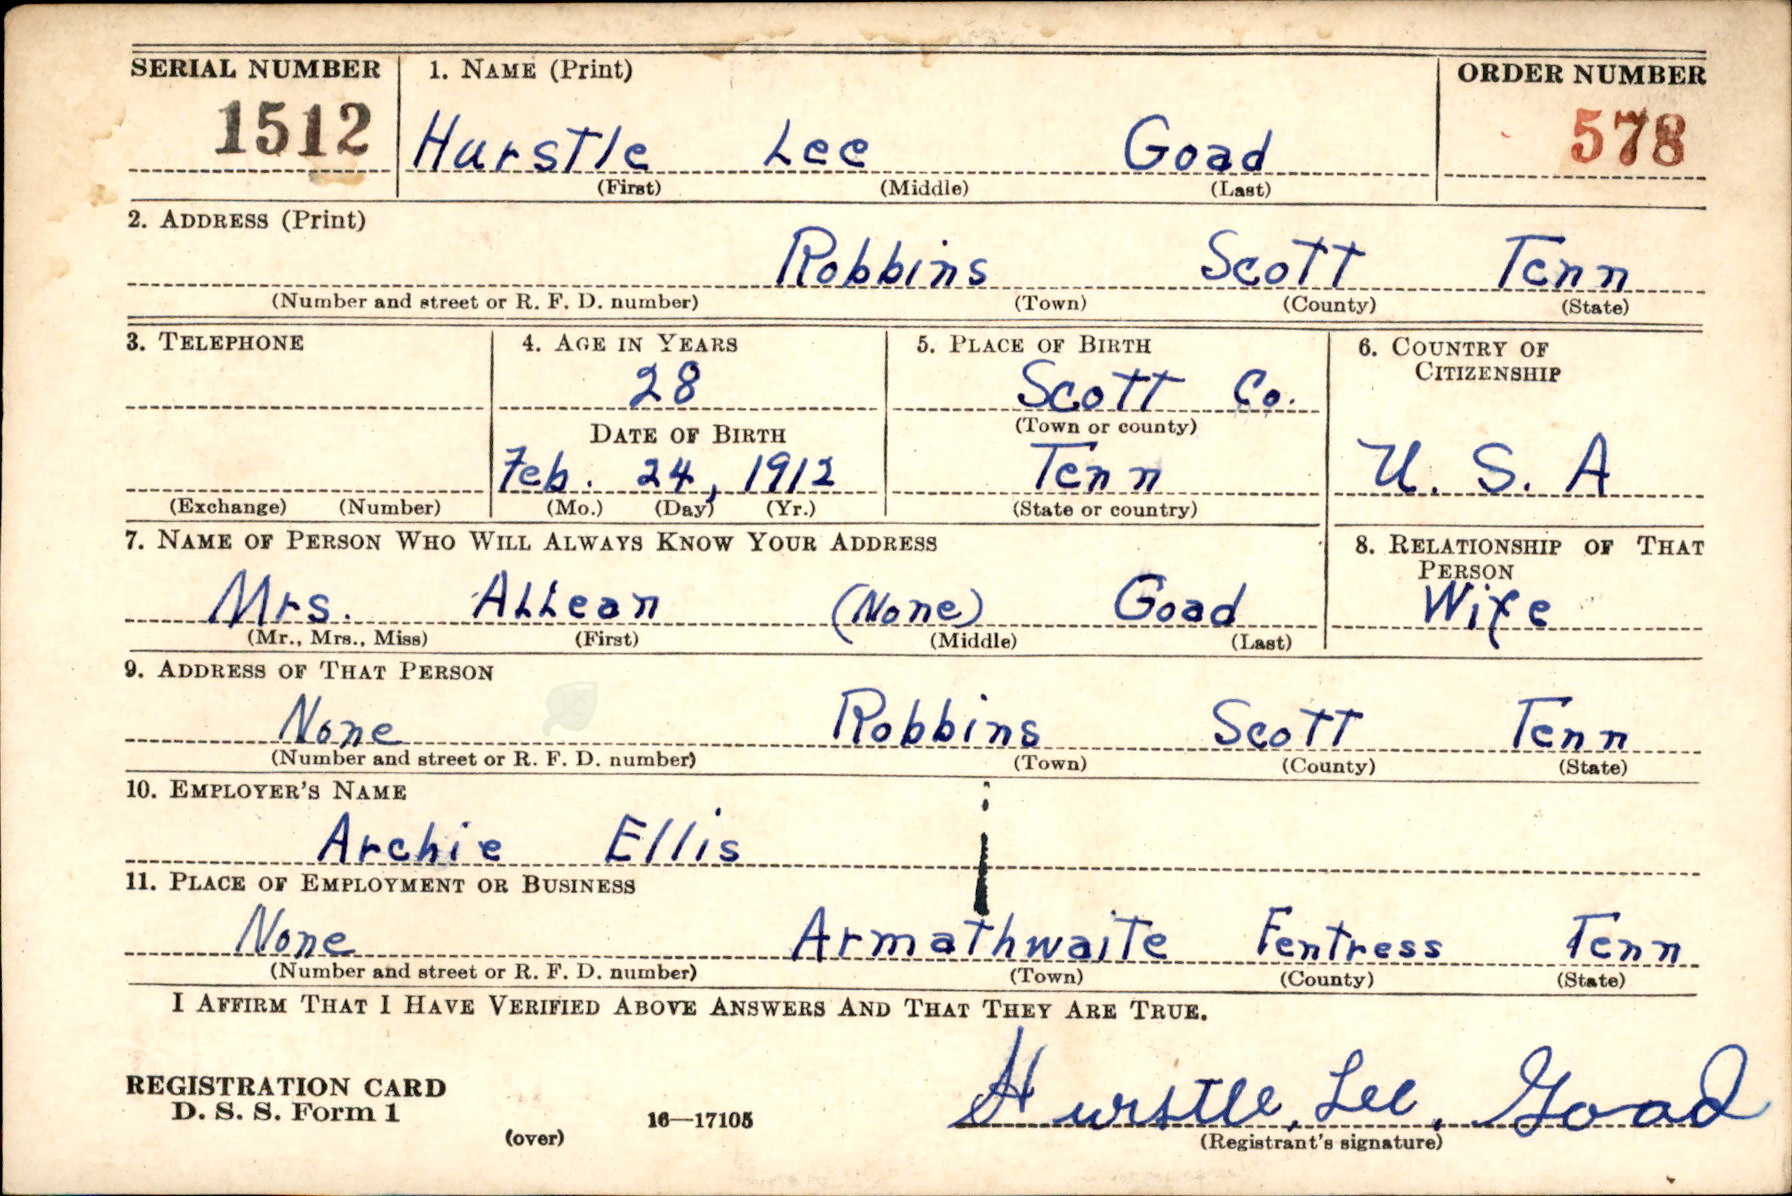 SERIAL NUMBER 1. NAME (Print) ORDER NUMBER
1512 Hurstle Lee Goad 578
(First) (Middle) (Last)
2. ADDRESS (Print)
Robbins Scott Tenn
(Number and street or R. F. D. number) (Town) (County) (State)
3. TELEPHONE 4. AGE IN YEARS 5. PLACE OF BIRTH 6. COUNTRY OF
CITIZENSHIP
28 Scott Co.
DATE OF BIRTH (Town or county)
Feb. 24, 1912 Tenn U. S. A
(Exchange) (Number) (Mo.) (Day) (Yr.) (State or country)
7. NAME OF PERSON WHO WILL ALWAYS KNOW YOUR ADDRESS 8. RELATIONSHIP OF THAT
PERSON
Mrs. ALLean (None) Goad Wife
(Mr., Mrs., Miss) (First) (Middle) (Last)
9. ADDRESS OF THAT PERSON
None Robbins Scott Tenn
(Number and street or R. F. D. number) (Town) (County) (State)
10. EMPLOYER'S NAME
Archie Ellis
11. PLACE OF EMPLOYMENT OR BUSINESS
None Armathwaite Fentress Tenn
(Number and street or R. F. D. number) (Town) (County) (State)
I AFFIRM THAT I HAVE VERIFIED ABOVE ANSWERS AND THAT THEY ARE TRUE.
REGISTRATION CARD
D. S. S. Form 1 16—17105 Hurstle. Lee. Goad
(over) (Registrant's signature)